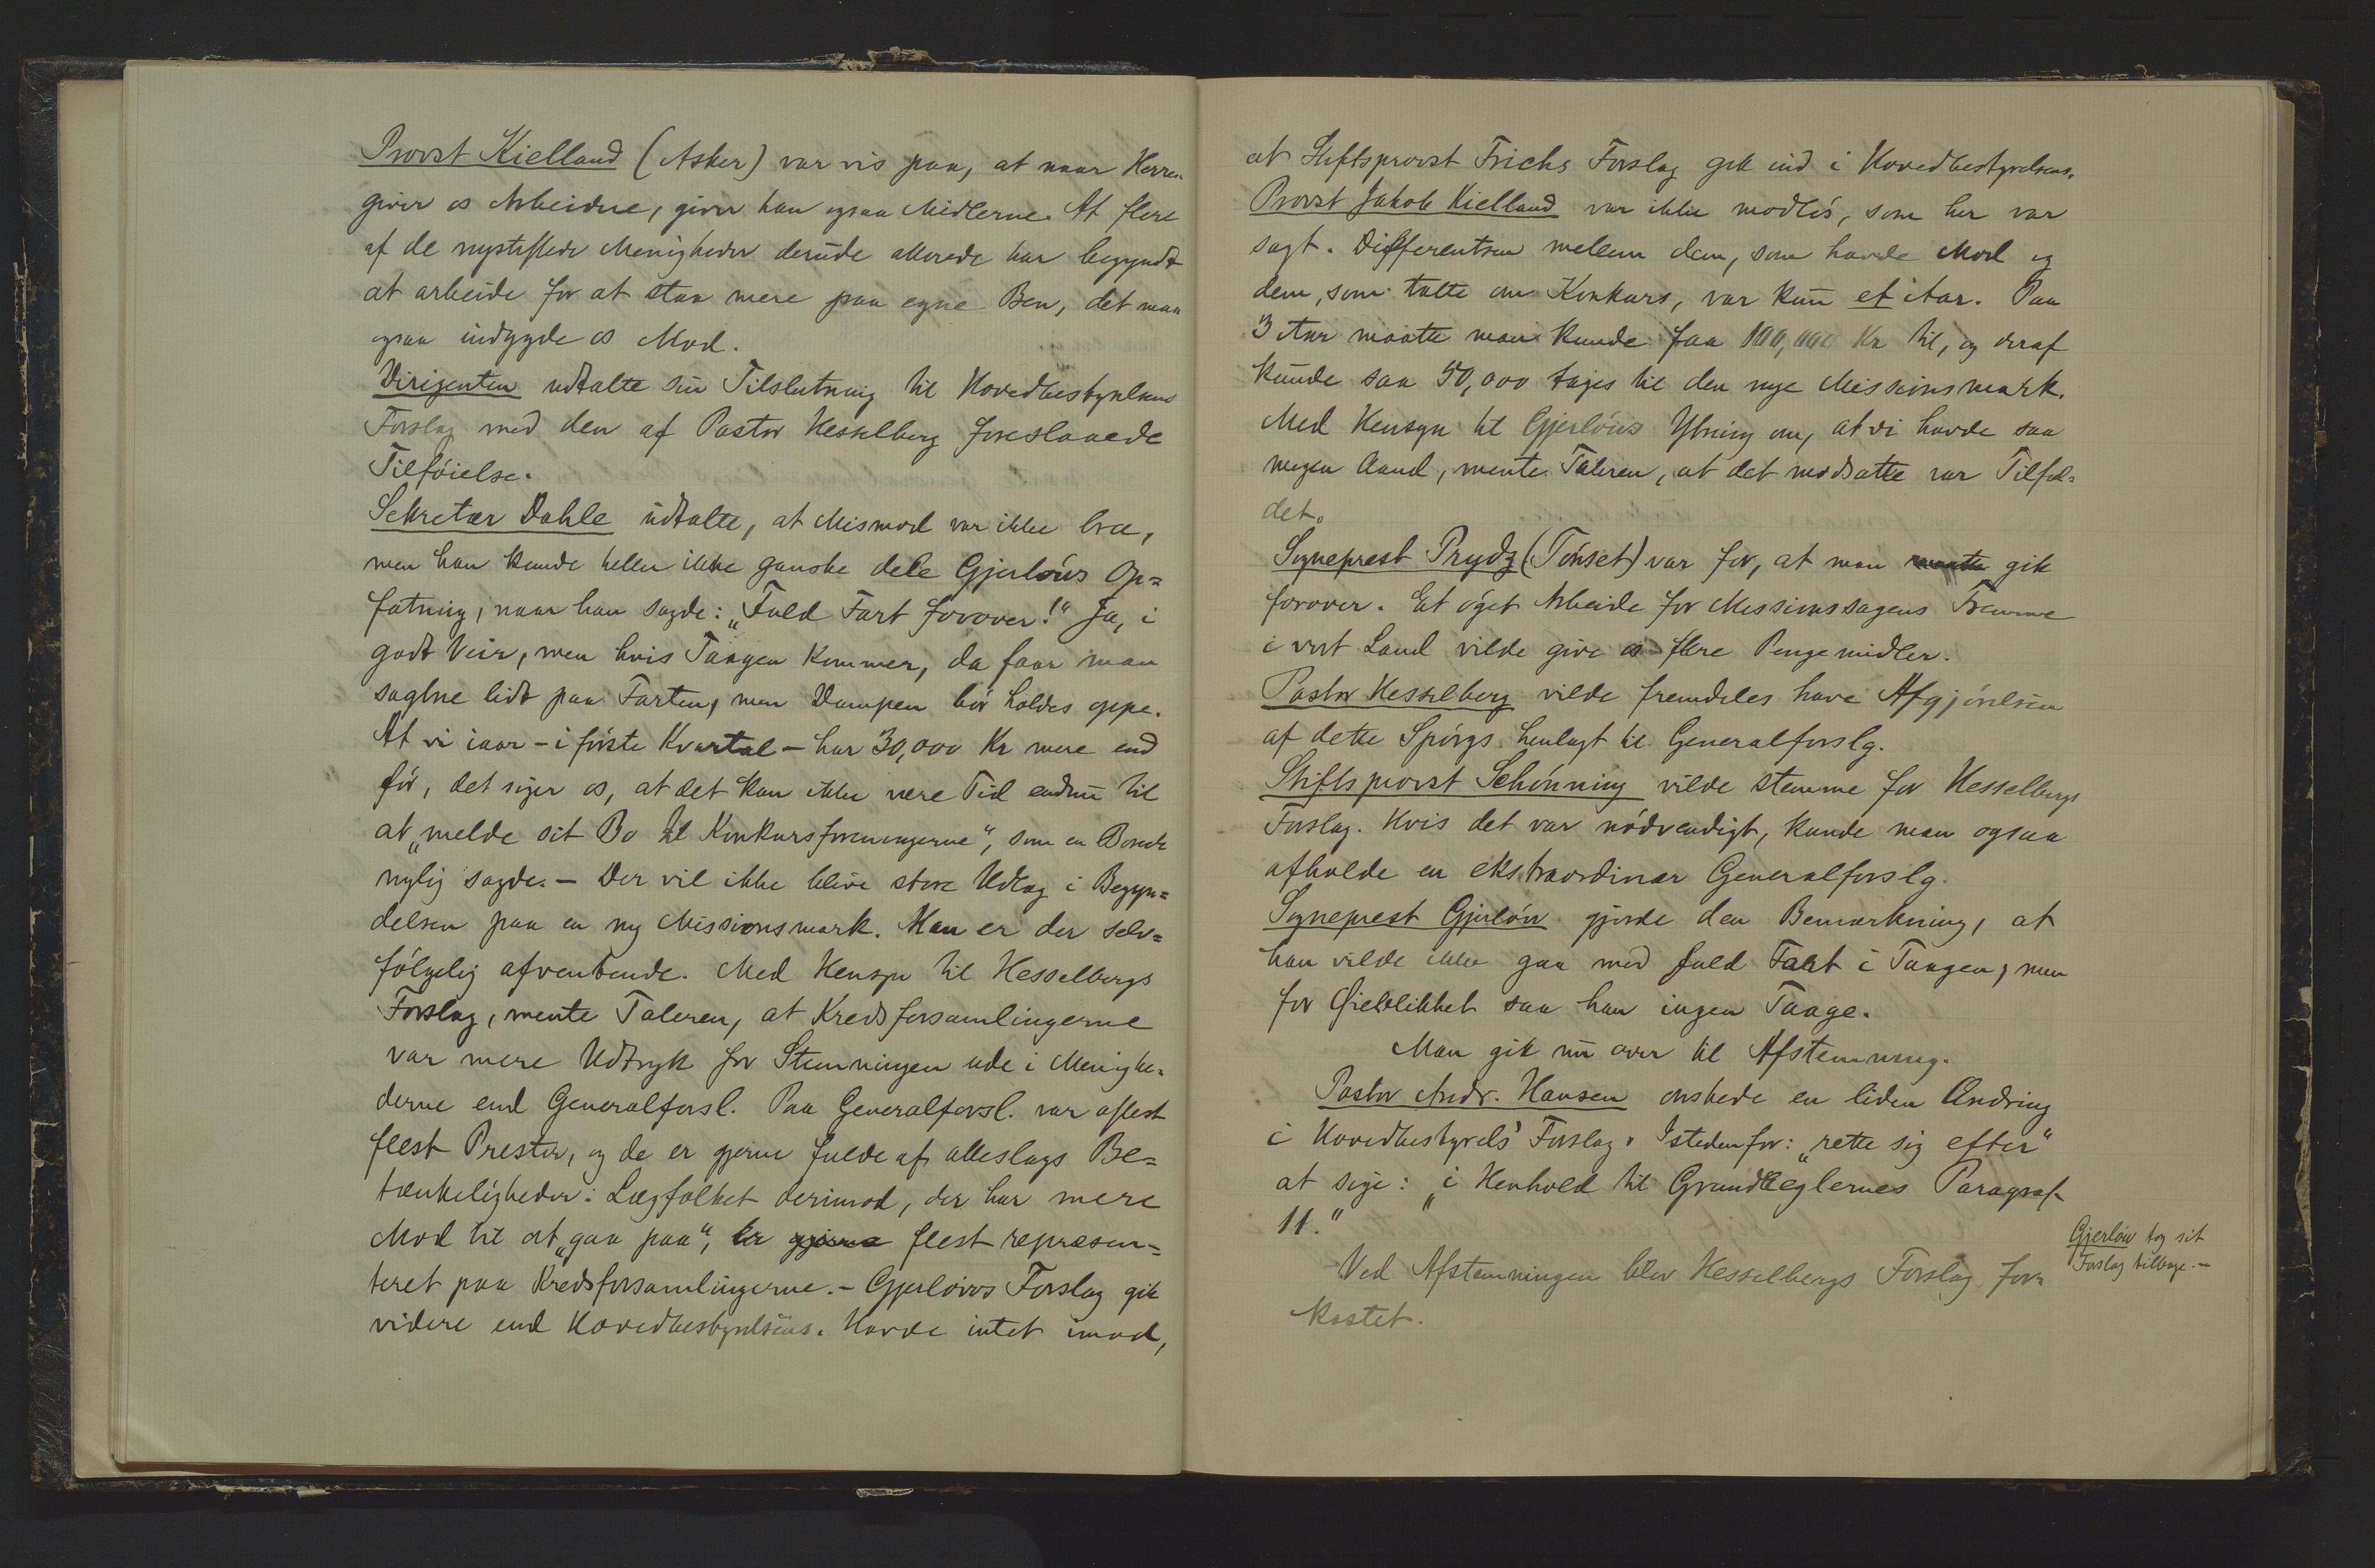 Provst Kielland (Asker) var vis paa, at naar Herren
giver os Arbeidne, giver han ogsaa Midlerne. At flere
af de nystiftede Menigheder derude allerede har begyndt
at arbeide for at staa mere paa egne Ben, det maa
ogsaa indgyde os Mod.
Dirigenten udtalte sin Tilslutning til Hovedbestyrelsens
Forslag med den af Pastor Hesselberg foreslaaede
Tilføielse.
Sekretær Dahle udtalte, at Mismod var ikke bra,
men han kunde heller ikke ganske dele Gjerløws Op=
fatning, naar han sagde: „Fuld Fart forover!" Ja, i
godt Veir, men hvis Taagen kommer, da faar man
sagtne lidt paa Farten, men Dampen bør holdes oppe.
At vi iaar - i første Kvartal - har 30,000 Kr mere end
før, det siger os, at det kan ikke være Tid endnu til
at „melde sit Bo til Konkursforeningerne", som en Bonde
nylig sagde. - Der vil ikke blive store Udlæg i Begyn=
delsen paa en ny Missionsmark. Man er der selv=
følgelig afventende. Med Hensyn til Hesselbergs
Forslag, mente Taleren, at Kredsforsamlingerne
var mere Udtryk for Stemningen ude i Menighe=
derne end Generalforsl. Paa Generalforsl. var oftest
fleest Prester, og de er gjerne fulde af alleslags Be=
tænkeligheder: Lægfolket derimod, der har mere
Mod til at „gaa paa", er gjerne fleest repræsen=
teret paa Kredsforsamlingerne. - Gjerløws Forslag gik
videre end Hovedbestyrelsens. Havde intet imod,
at Stiftsprovst Frichs Forslag gik ind i Hovedbestyrelsens.
Provst Jakob Kielland var ikke modløs, som her var
sagt. Differentsen mellem dem, som havde Mod og
dem, som talte om Konkurs, var kun et Aar. Paa
3 Aar maatte man kunde faa 100,000 Kr til, og deraf
kunde saa 50,000 tages til den nye Missionsmark.
Med Hensyn til Gjerløws Ytring om, at vi havde saa
megen Aand, mente Taleren, at det modsatte var Tilfæl=
det.
Sogneprest Prydz (Tønset) var for, at man maatte gik
forover. Et øget Arbeide for Missionssagens Fremme
i vort Land vilde give os flere Pengemidler.
Pastor Hesselberg vilde fremdeles have Afgjørelsen
af dette Spørgs. henlagt til Generalforslg.
Stiftsprovst Schønning vilde stemme for Hesselbergs
Forslag. Hvis det var nødvendigt, kunde man ogsaa
afholde en ekstraordinær Generalforslg.
Sogneprest Gjerløw gjorde den Bemærkning, at
han vilde ikke gaa med fuld Fart i Taagen, men
for Øieblikket saa han ingen Taage.
Man gik nu over til Afstemning.
Pastor Andr. Hansen ønskede en liden Ændring
i Hovedbestyrels' Forslag. Istedenfor: „rette sig efter"
at sige: „i Henhold til Grundreglernes Paragraf
11."
Gjerløw tog sit
Forslag tilbage. -
Ved Afstemningen blev Hesselbergs Forslag for=
kastet.